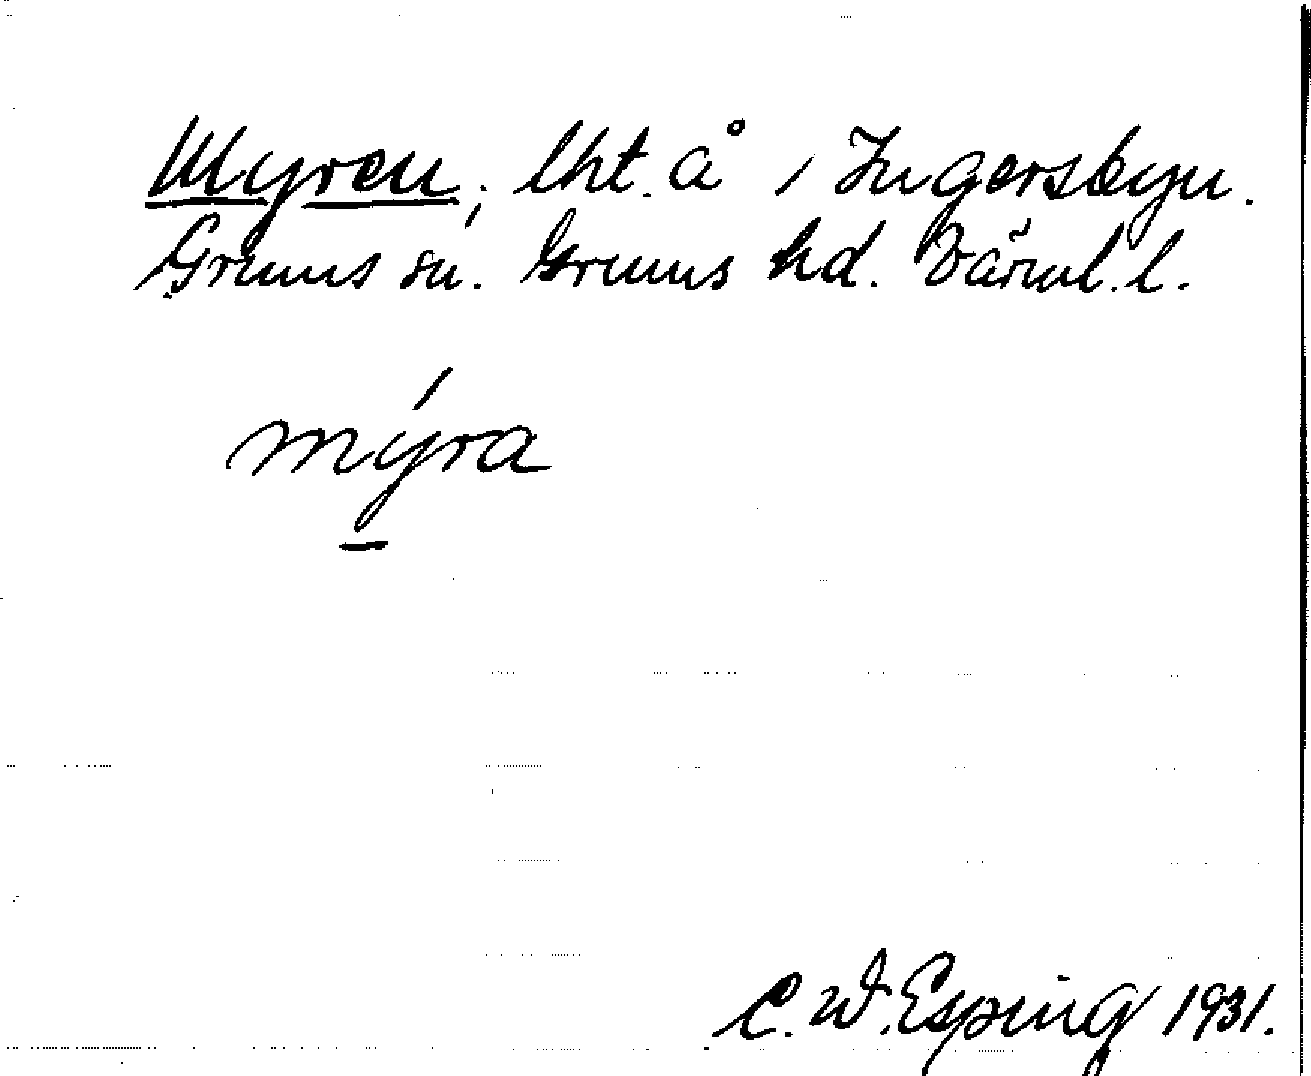 Myren; lht. å / Ingersbyn.
Grums sn. Grums hd. Värml. l.
mýra
C. W. Esping 1931.